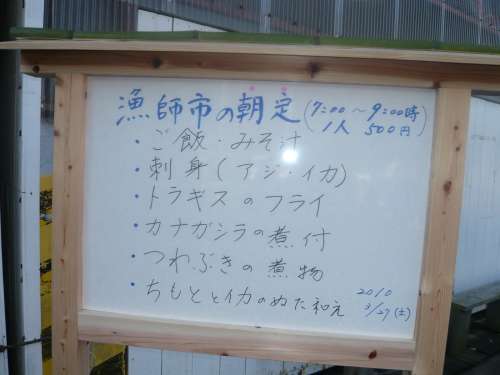 漁師市の朝定 (7:00～9:00時
1人 500円)
・ご飯・みそ汁
・刺身(アジ・イカ)
・トラギスのフライ
・カナガシラの煮付
・つわぶきの煮物
・ちもととイカのぬた和え
2010
3/27(土)